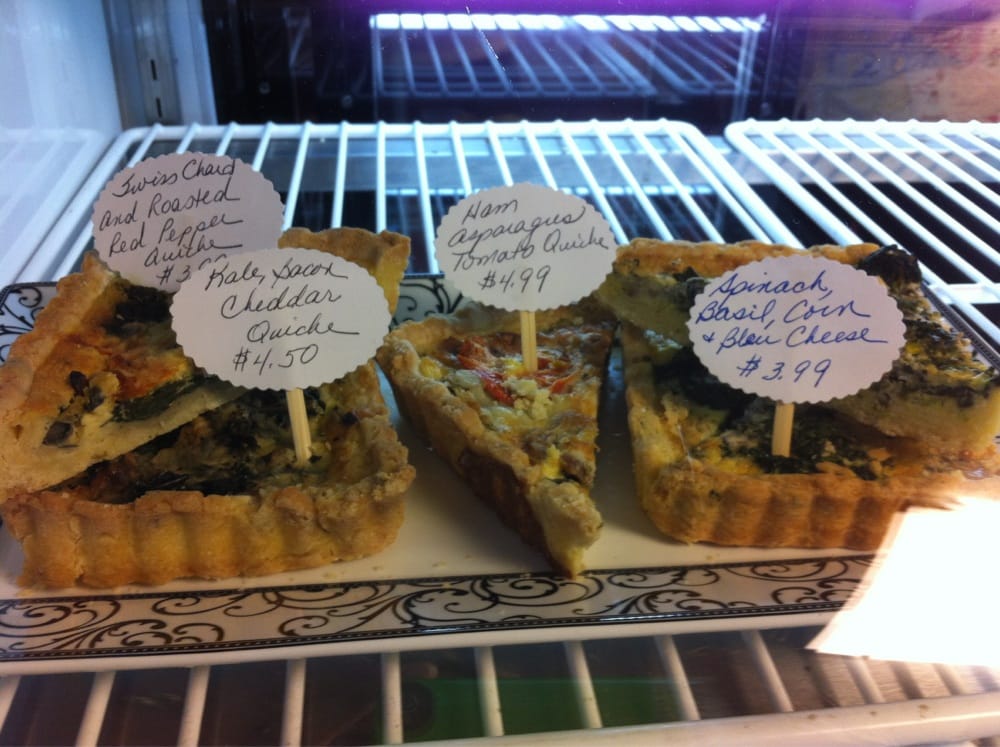 Swiss Chard
and Roasted
Red Pepper
Quiche
Kale, Bacon
Cheddar
Quiche
$4.50
Ham
Asparagus
Tomato Quiche
$4.99
Spinach,
Basil, Corn
+ Bleu Cheese
$3.99